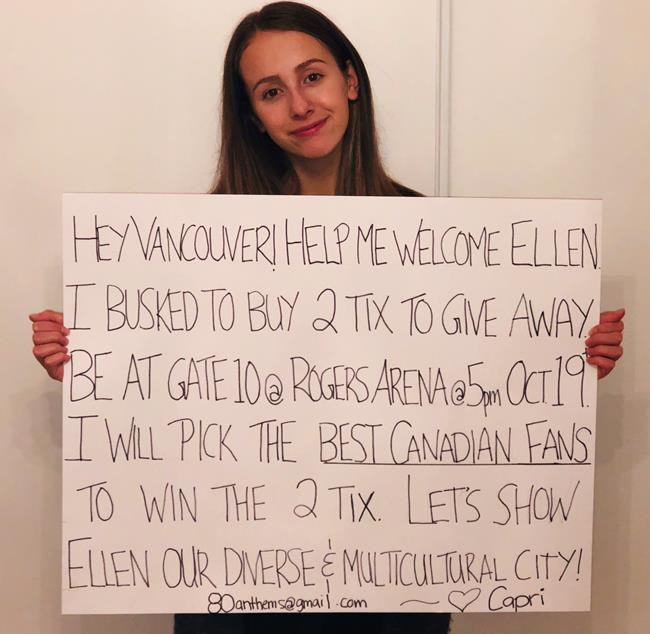 HEY VANCOUVER! HELP ME WELCOME ELLEN.
I BUSKED TO BUY 2 TIX TO GIVE AWAY.
BE AT GATE 10 @ ROGERS ARENA @ 5pm OCT 19th.
I WILL PICK THE BEST CANADIAN FANS
TO WIN THE 2 TIX. LET'S SHOW
ELLEN OUR DIVERSE & MULTICULTURAL CITY!
80anthems@gmail.com ~ ♡ Capri